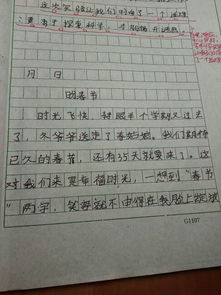 这次实验让我们明白了一个道理
：要善于探索科学，才能揭开迷题。
月 日
盼春节
时光飞快，转眼半个学期又过去
了，冬爷爷送走了春姑娘。我们期待
已久的春节，还有35天就要来了。这
对我们来是幸福时光，一想到“春节
”两字，笑容就不由得在我脸上绽放
G1107